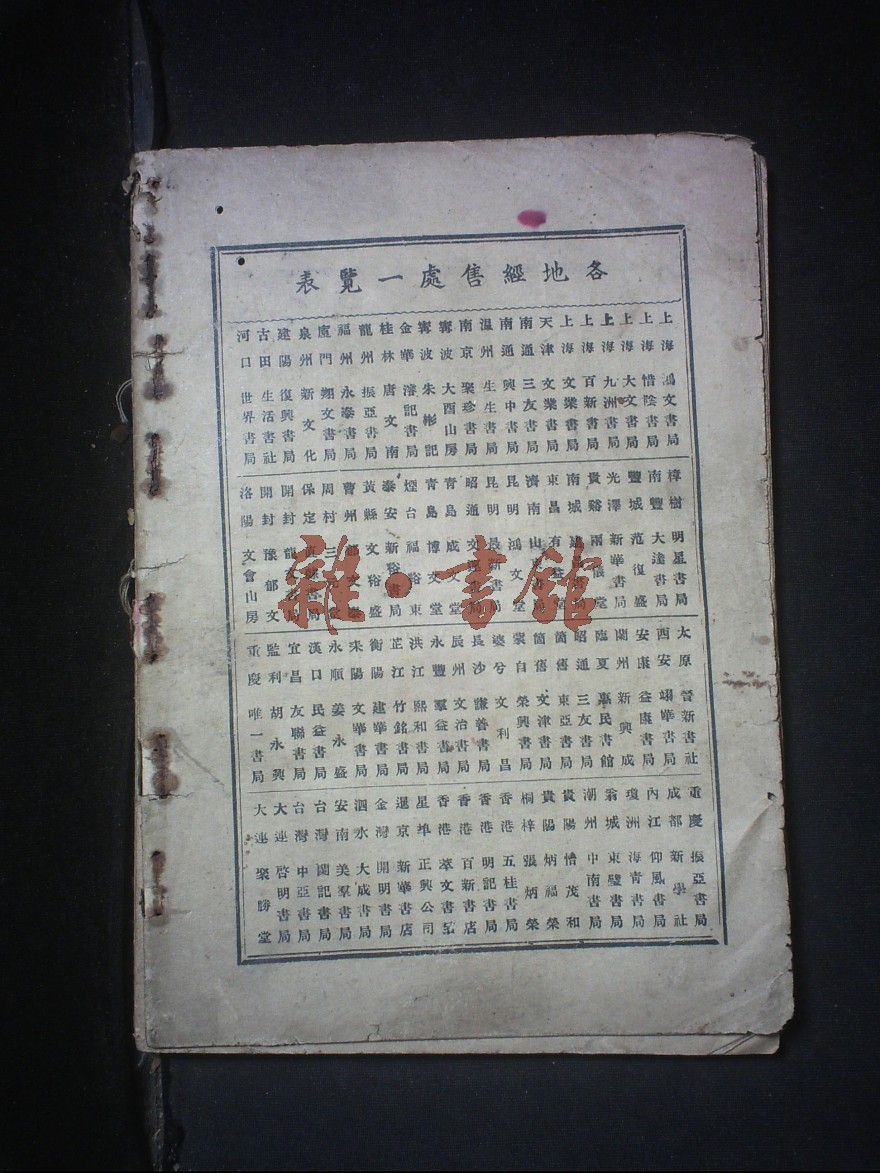 各地經售處一覽表
上海 鴻文書局
上海 惜陰書局
上海 大文書局
上海 九洲書局
上海 百新書局
上海 文業書局
天津 文業書局
南通 三友書局
南通 興中書局
溫州 生生書局
南京 聚珍書局
寗波 大酉山房
寗波 朱彬記
金華 濬記書局
桂林 唐文南
龍州 振亞書局
福州 永泰書局
廈門 翔文書局
泉州 新文化
建陽 復興書局
古田 生活書社
河口 世界書局
樟樹 明星書局
南豐 大達書局
豐城 范復盛
光澤 新華書局
貴谿
南城
東昌
濟南
昆明 鴻文堂
昆明 最新書局
昭通
青島 成文堂
青島 博文堂
煙台 福裕東
泰安 新裕書局
黃縣 文裕盛
曹州
周村
保定
開封
開封 豫郁文
洛陽 文會山房
太原 晉新書社
西安 翊華書局
安康 益康書局
蘭州 新興成
臨夏 惠民書館
昭通 三友書局
箇舊 東亞書局
箇舊 文津書局
蒙自 榮興書局
婆兮 文利昌
長沙 謙善書局
辰州 文治書局
永豐 羣益書局
洪江 熙和書局
芷江 竹銘書局
衡陽 建華書局
耒陽 文華書局
永順 姜永盛
漢口 民益書局
宜昌 友聯書局
監利 胡永興
重慶 唯一書局
重慶 振亞書局
成都 新學社
內江 仰風書局
瓊洲 海青書局
翁城 東璧書局
潮州 中南書局
貴陽 愔茂和
貴陽 炳福榮
桐梓 張炳榮
香港 五桂書局
香港 明記書局
香港 百新書店
香港 萃文書室
星埠 正興公司
暹京 新華書店
金灣 開明書局
泗水 大成書局
安南 美羣書局
台灣 閩記書局
台灣 中亞書局
大連 啓明書局
大連 聚勝堂
雜·書館